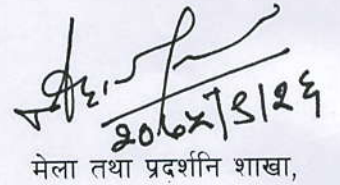 २०७५/९/२६
मेला तथा प्रदर्शनि शाखा,